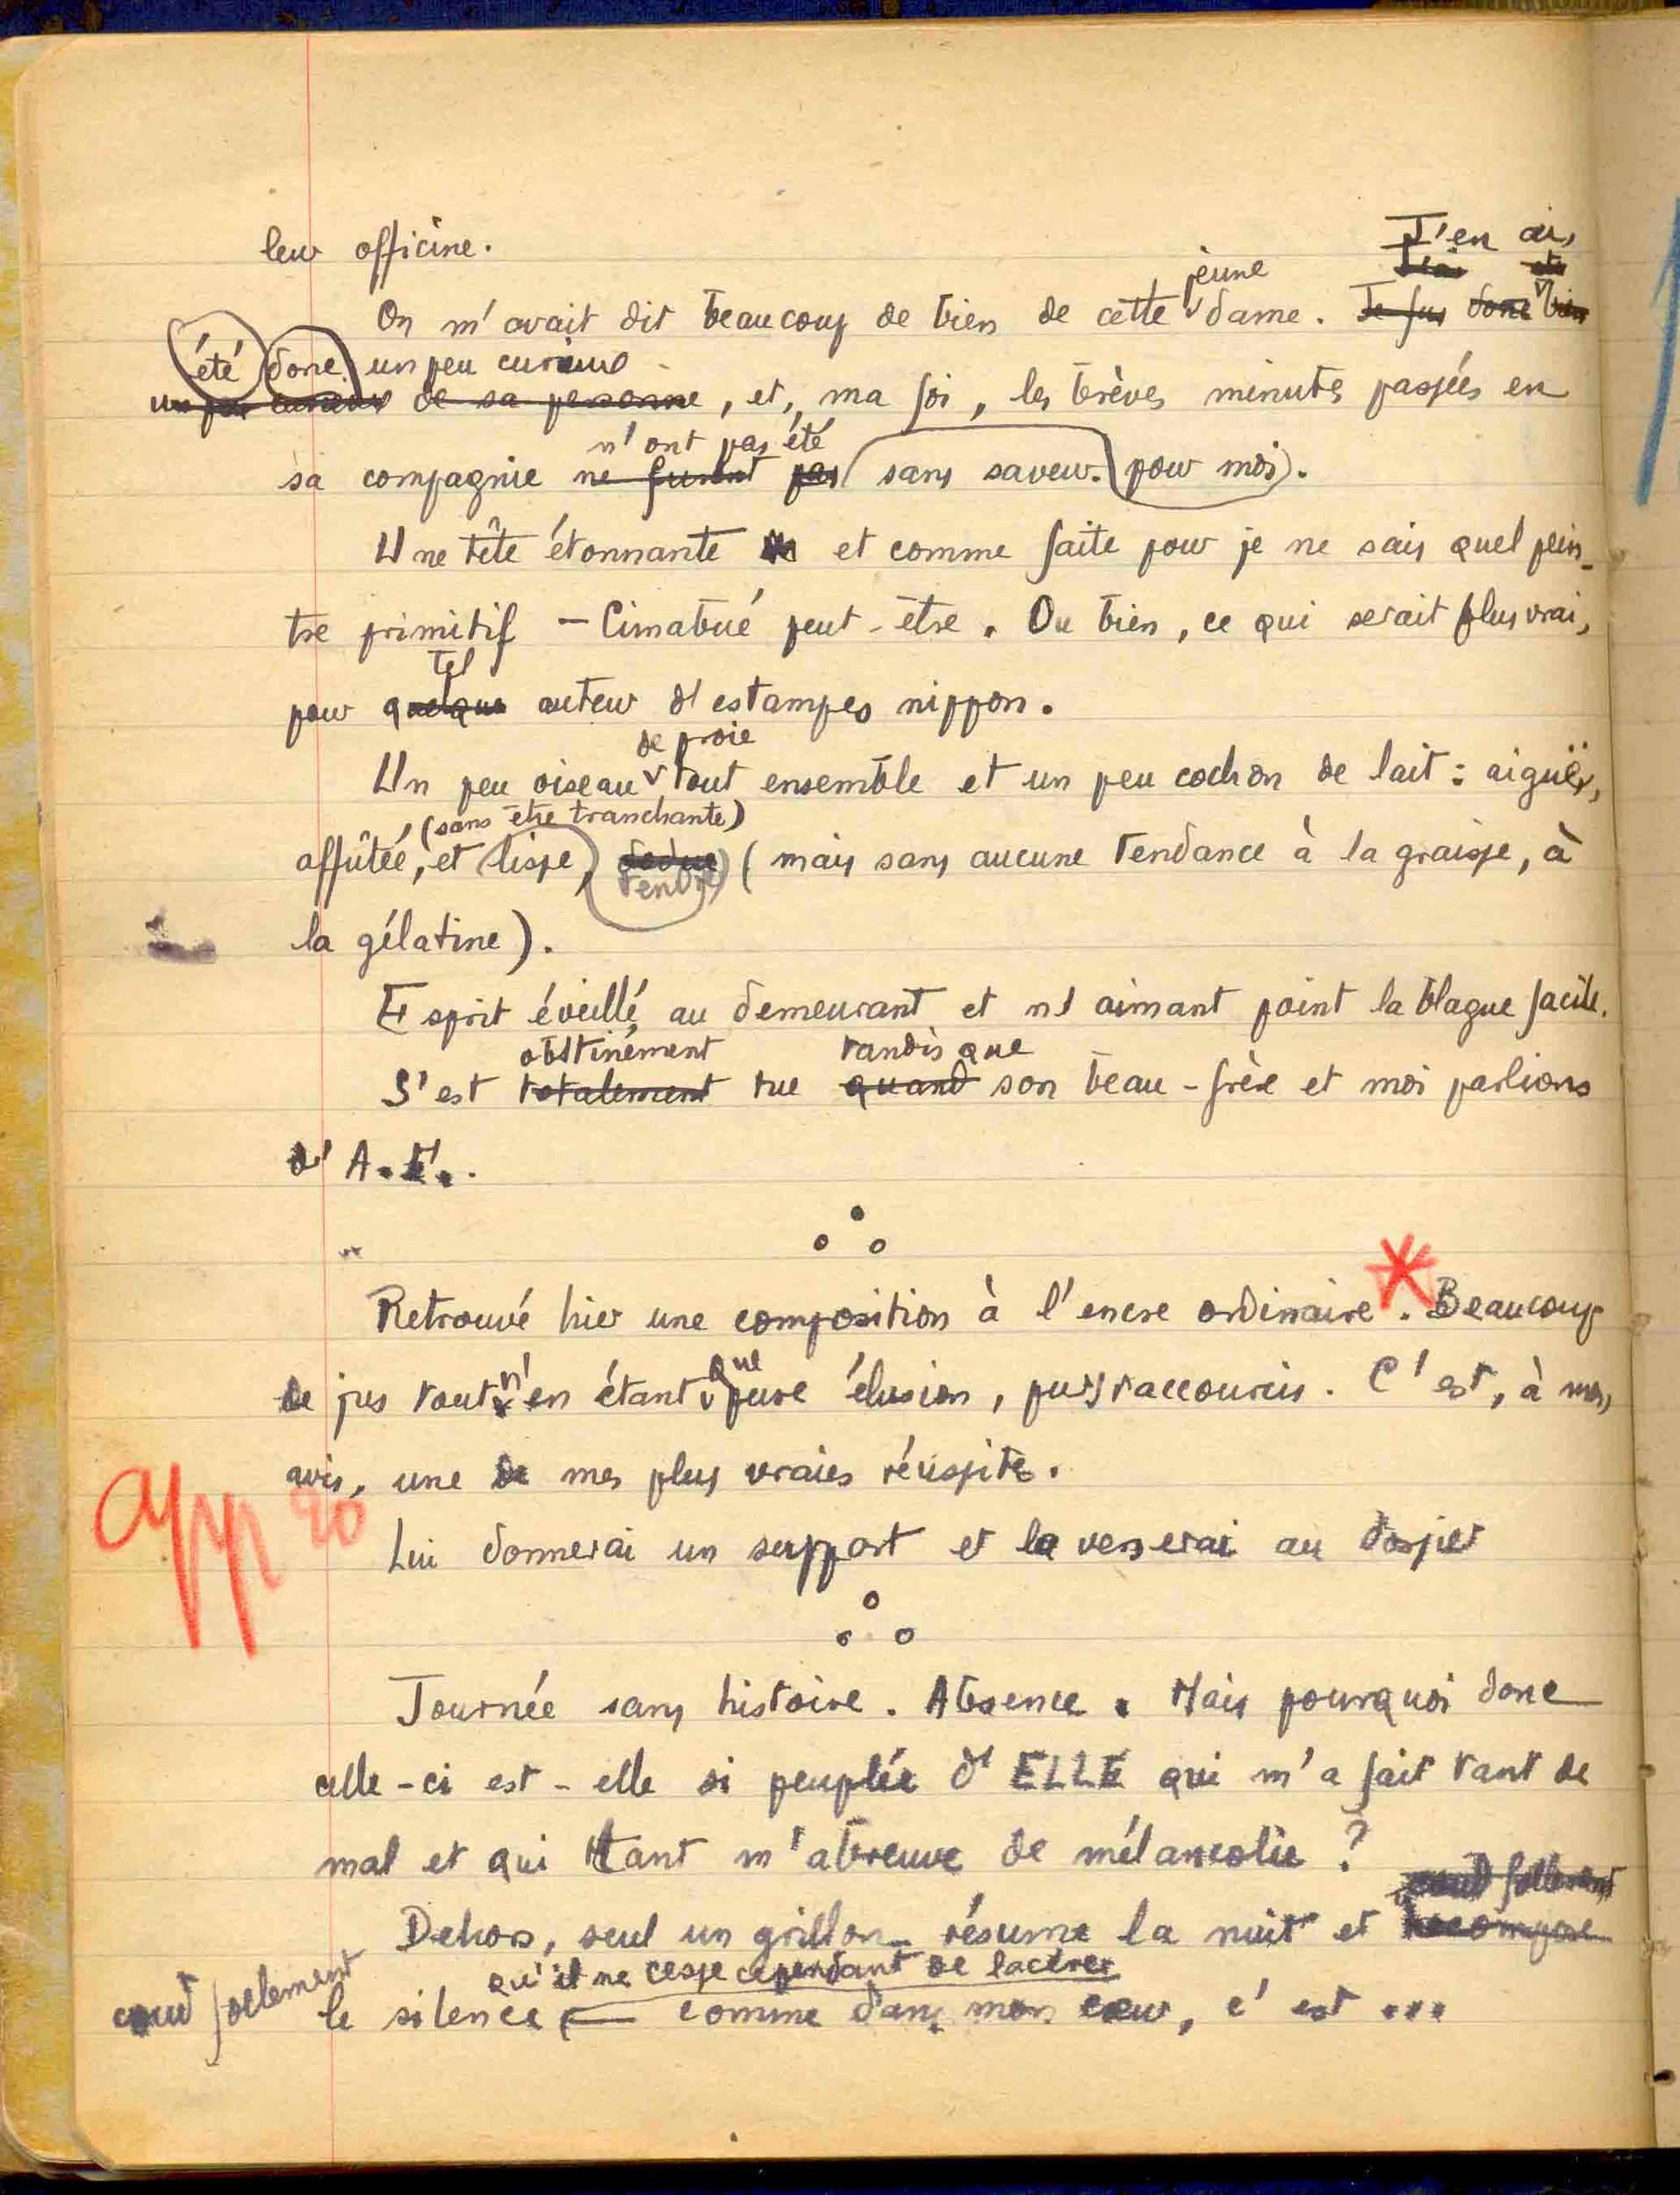 leur officine.
J'en ai,
jeune
On m'avait dit beaucoup de bien de cette dame. Je fus donc bien
été donc un peu curieux
un peu curieux de sa personne, et, ma foi, les brèves minutes passées en
n'ont pas été
sa compagnie ne furent pas sans saveur. pour moi).
Une tête étonnante et comme faite pour je ne sais quel pein-
tre primitif – Cimabué peut-être. Ou bien, ce qui serait plus vrai,
tel
pour quelque auteur d'estampes nippon.
de proie
Un peu oiseau tout ensemble et un peu cochon de lait : aiguë,
(sans être tranchante)
affûtée, et lisse, (mais sans aucune tendance à la graisse, à
tendre
la gélatine).
Esprit éveillé au demeurant et n'aimant point la blague facile.
obstinément tandis que
S'est totalement tue quand son beau-frère et moi parlions
d'A.E..
Retrouvé hier une composition à l'encre ordinaire *. Beaucoup
que
de jus tout n'en étant pure élusion, purs raccourcis. C'est, à mon
avis, une de mes plus vraies réussites.
app 20
Lui donnerai un support et la verserai au dossier
Journée sans histoire. Absence. Mais pourquoi donc
celle-ci est-elle si peuplée d'ELLE qui m'a fait tant de
mal et qui tant m'abreuve de mélancolie ?
coud follement
Dehors, seul un grillon résume la nuit et recompose
qu'il ne cesse cependant de lacérer
coud follement
le silence – comme dans mon cœur, c'est ...